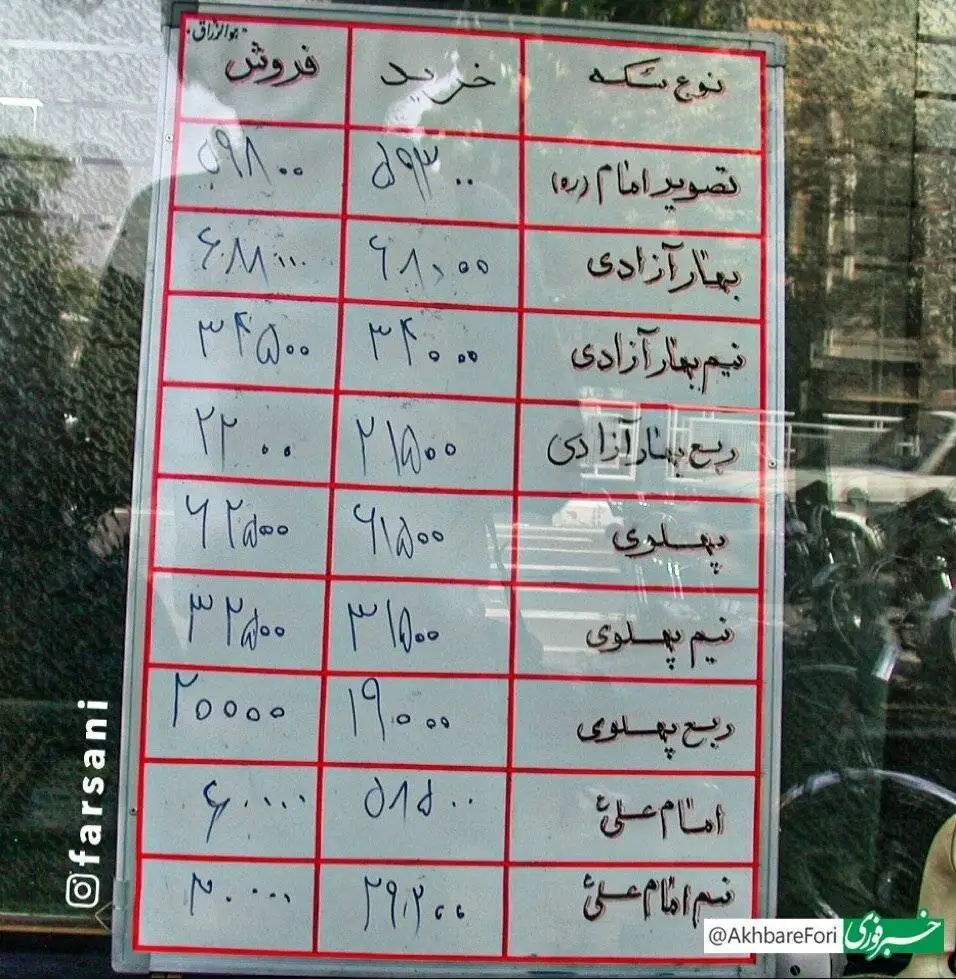 هوالرزاق
نوع سکه خرید فروش
تصویر امام (ره) ۵۹۳۰۰ ۵۹۸۰۰
بهار آزادی ۶۸۰۰۰
نیم بهار آزادی ۳۴۰۰۰ ۳۴۵۰۰
ربع بهار آزادی ۲۱۵۰۰ ۲۲۰۰
پهلوی ۶۱۵۰۰ ۶۲۵۰۰
نیم پهلوی ۳۱۵۰۰ ۳۲۵۰۰
ربع پهلوی ۱۹۰۰۰ ۲۰۰۰۰
امام علی ۵۸۵۰۰ ۶۰۰۰۰
نیم امام علی ۲۹۲۰۰ ۳۰۰۰۰
farsani
@AkhbareFori
خبرفوری